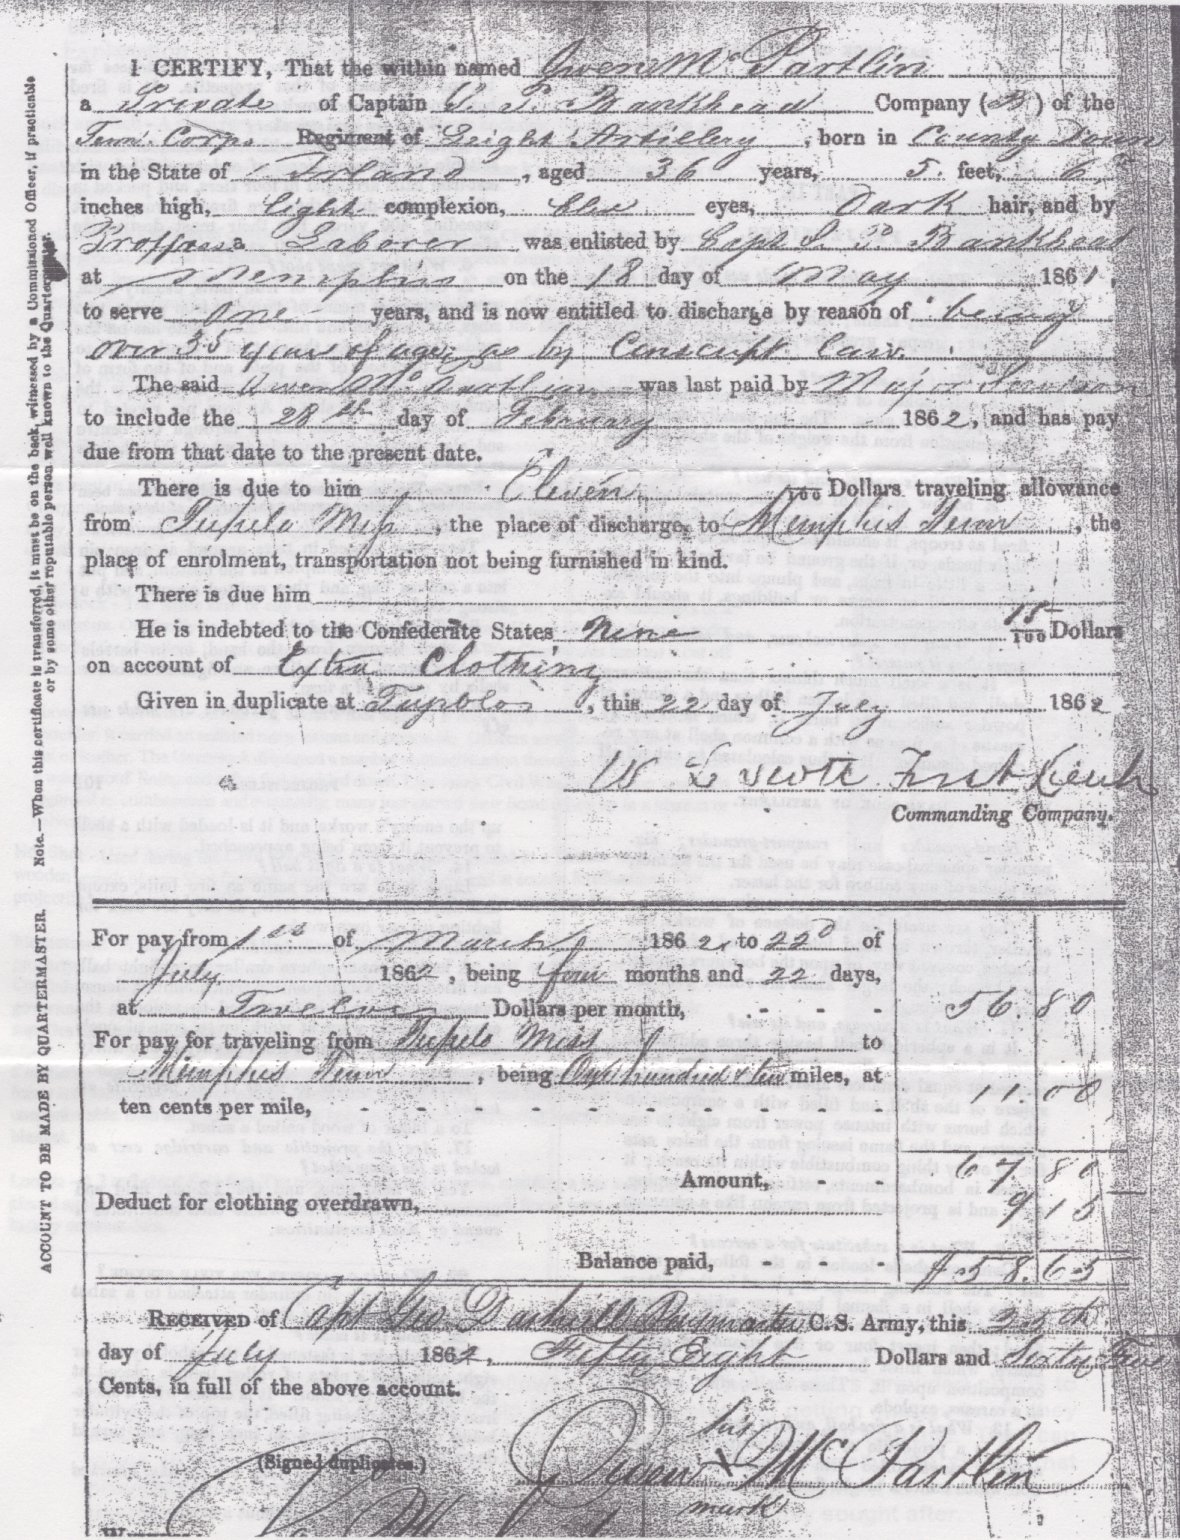 I CERTIFY, That the within named Owen Mc Partlin
a Private of Captain S. P. Bankhead Company (B) of the
Tenn. Corps Regiment of Light Artillery, born in County Down
in the State of Irland, aged 36 years, 5. feet, 6
inches high, light complexion, blue eyes, Dark hair, and by
a Laborer was enlisted by Capt S. P. Bankhead
at Memphis on the 18 day of May 1861,
to serve one years, and is now entitled to discharge by reason of being
over 35 years of age, as by Conscript Law.
The said Owen Mc Partlin was last paid by Major
to include the 28th day of February 1862, and has pay
due from that date to the present date.
There is due to him Eleven /100 Dollars traveling allowance
from Tupelo Miss, the place of discharge, to Memphis Tenn, the
place of enrolment, transportation not being furnished in kind.
There is due him
He is indebted to the Confederate States Nine 15/100 Dollars
on account of Extra Clothing
Given in duplicate at Tupolos, this 22 day of July 1862
W L Scott First Lieut
Commanding Company.
For pay from 1st of March 1862, to 22d of
July 1862, being four months and 22 days,
at Twelve Dollars per month, - - - 56.80
For pay for traveling from Tupelo Miss to
Memphis Tenn, being One hundred & ten miles, at
ten cents per mile, - - - 11.00
Amount, - - 67.80
Deduct for clothing overdrawn, 9 15
Balance paid, - - - $58.65
RECEIVED of Capt Geo Dashiell Paymaster C. S. Army, this 25th
day of July 1862, Fifty Eight Dollars and Sixty Five
Cents, in full of the above account.
his
(Signed duplicates.) Owen x Mc Partlin
mark
Note.—When this certificate is transferred, it must be on the back, witnessed by a Commissioned Officer, if practicable
or by some other reputable person well known to the Quartermaster.
ACCOUNT TO BE MADE BY QUARTERMASTER.